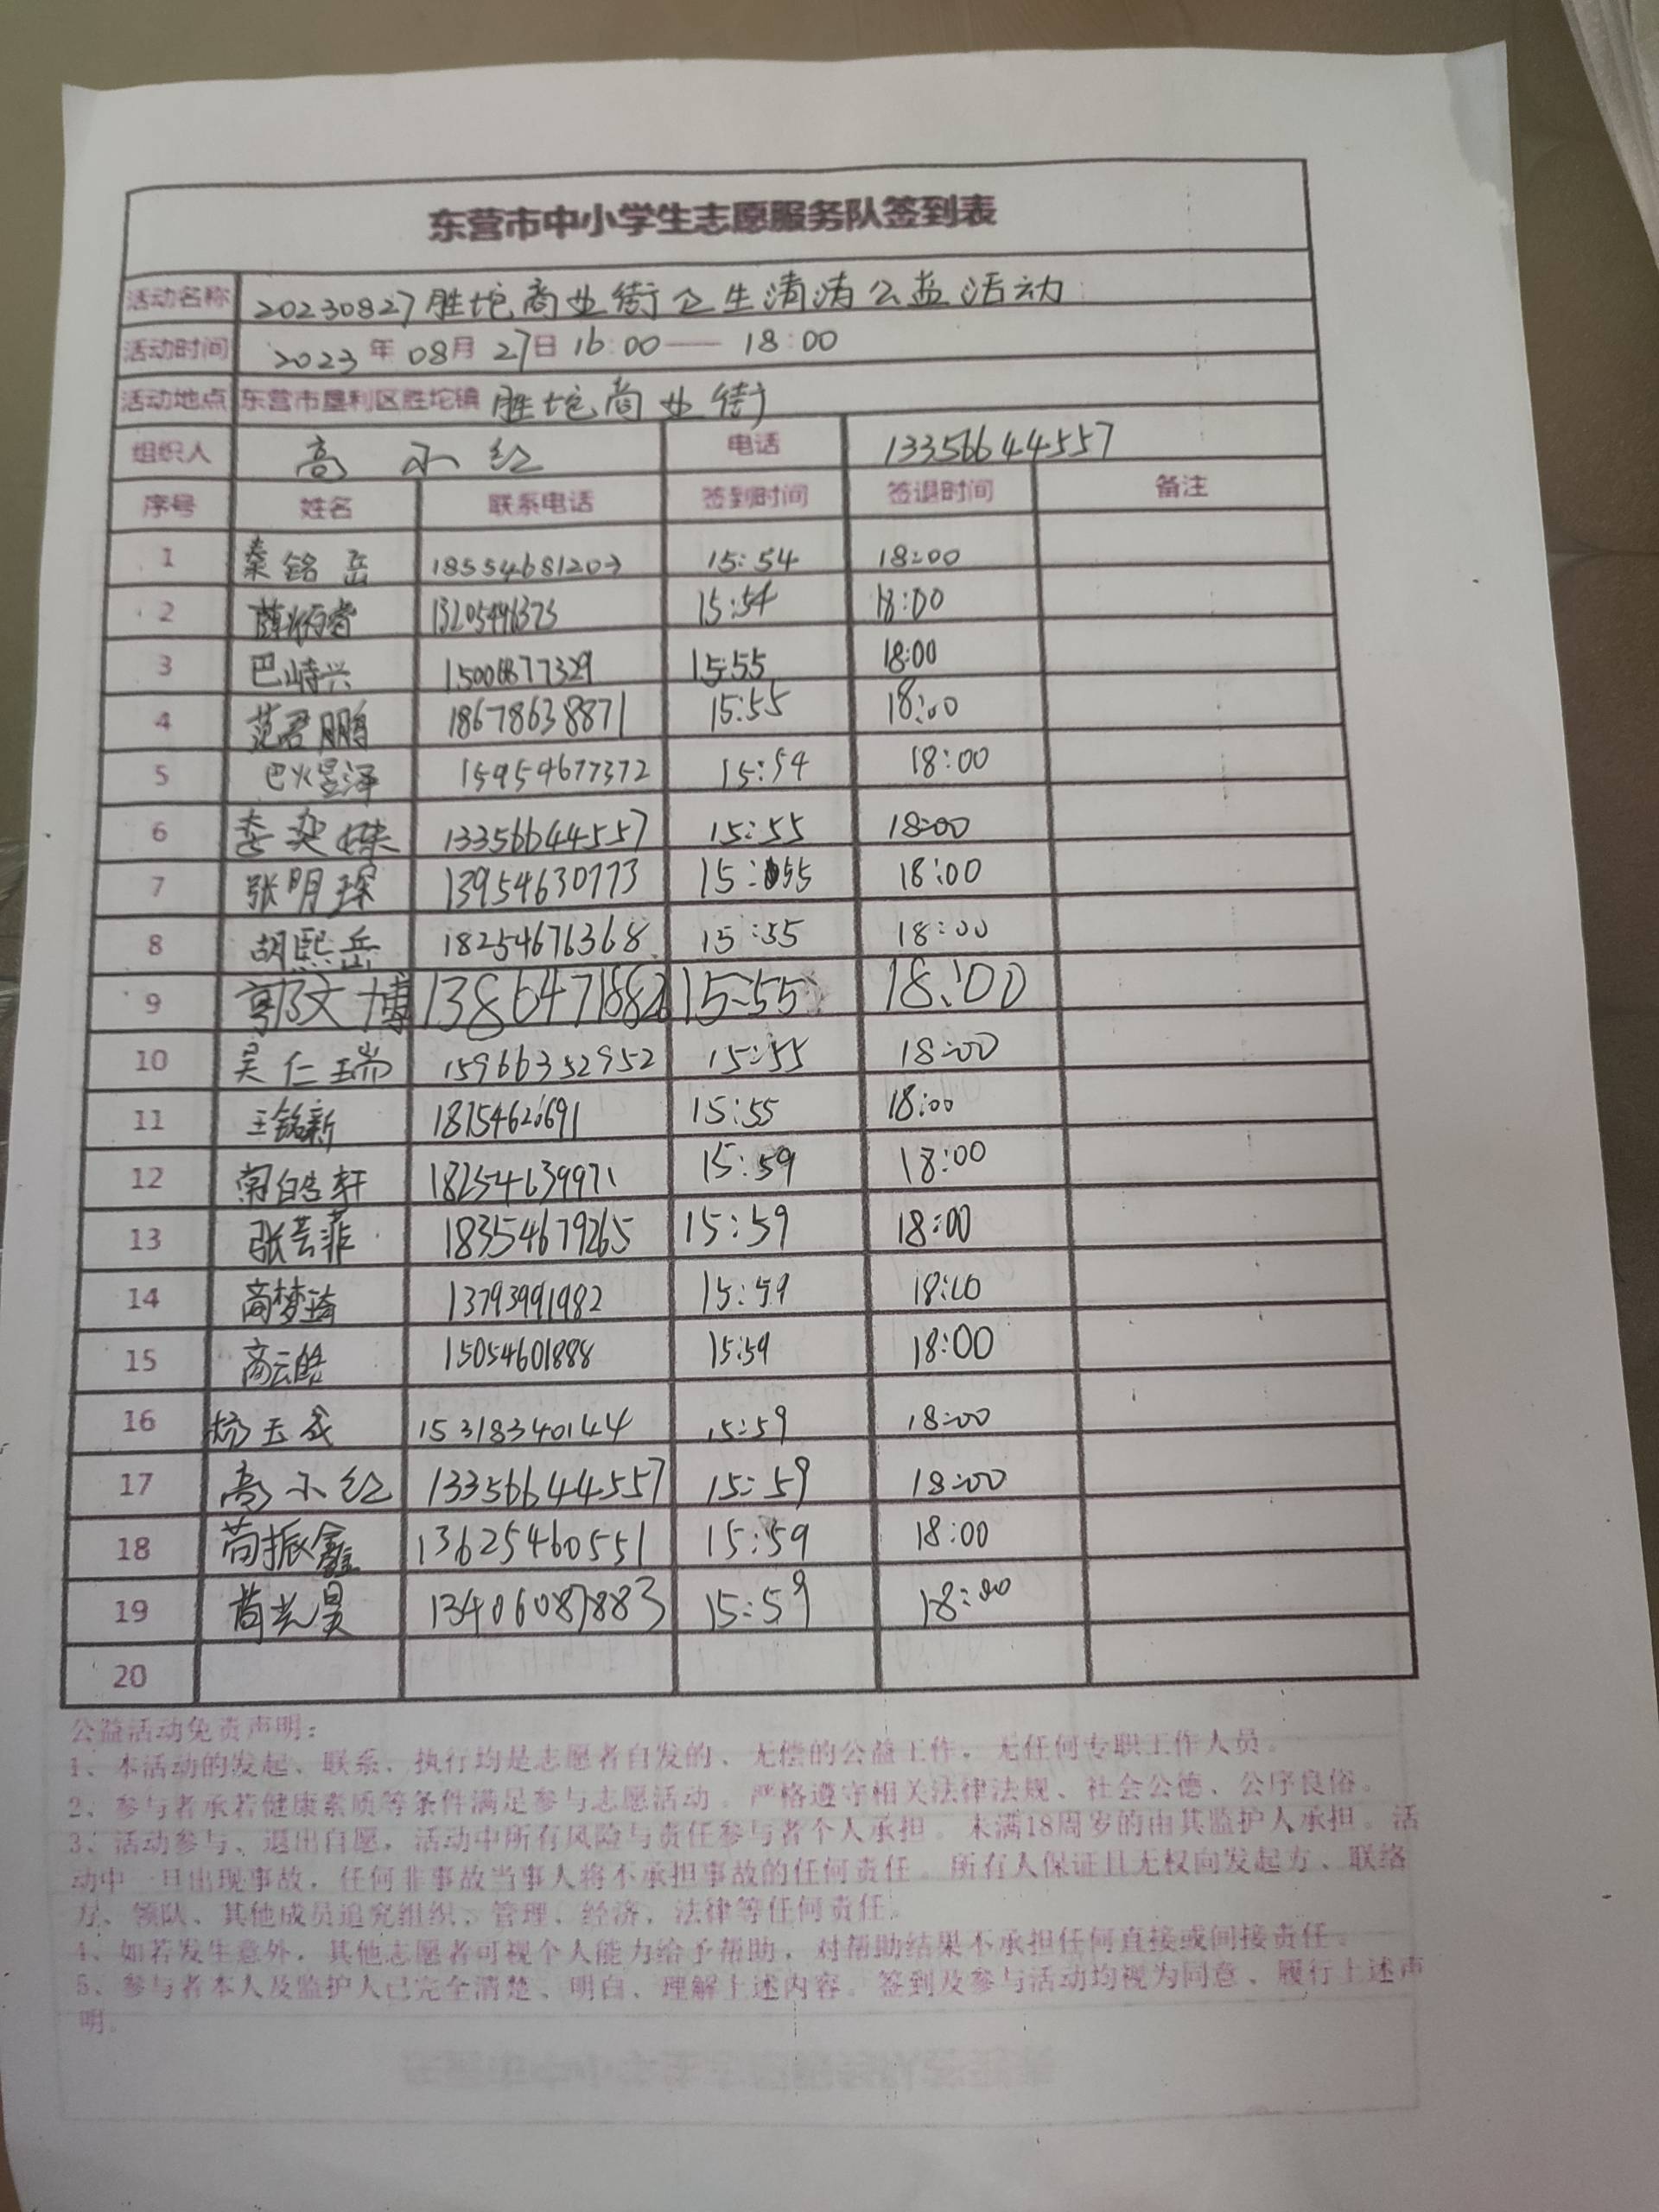 东营市中小学生志愿服务队签到表
活动名称 20230827胜坨商业街卫生清洁公益活动
活动时间 2023年08月27日16:00——18:00
活动地点 东营市垦利区胜坨镇 胜坨商业街
组织人 高小红 电话 13356644557
序号 姓名 联系电话 签到时间 签退时间 备注
1 秦铭岳 18554681203 15:54 18:00
2 15:54 18:00
3 巴峙兴 15:55 18:00
4 范君鹏 18678638871 15:55 18:00
5 巴煜泽 15954677372 15:54 18:00
6 13356644557 15:55 18:00
7 张明琛 13954630773 15:55 18:00
8 胡熙岳 18254676368 15:55 18:00
9 郭文博 15:55 18:00
10 吴仁瑞 15966352952 15:55 18:00
11 王铭新 15:55 18:00
12 18254639971 15:59 18:00
13 张芸菲 18354679265 15:59 18:00
14 高梦琦 13793991982 15:59 18:00
15 高云皓 15054601888 15:59 18:00
16 杨玉成 15318340144 15:59 18:00
17 高小红 13356644557 15:59 18:00
18 苟振鑫 13625460551 15:59 18:00
19 13406087883 15:59 18:00
20
公益活动免责声明：
1、本活动的发起、联系、执行均是志愿者自发的、无偿的公益工作，无任何专职工作人员。
2、参与者承若健康素质等条件满足参与志愿活动。严格遵守相关法律法规、社会公德、公序良俗。
3、活动参与、退出自愿，活动中所有风险与责任参与者个人承担。未满18周岁的由其监护人承担。活
动中一旦出现事故，任何非事故当事人将不承担事故的任何责任。所有人保证且无权向发起方、联络
方、领队、其他成员追究组织、管理、经济，法律等任何责任。
4、如若发生意外，其他志愿者可视个人能力给予帮助，对帮助结果不承担任何直接或间接责任。
5、参与者本人及监护人已完全清楚、明白、理解上述内容。签到及参与活动均视为同意、履行上述声
明。